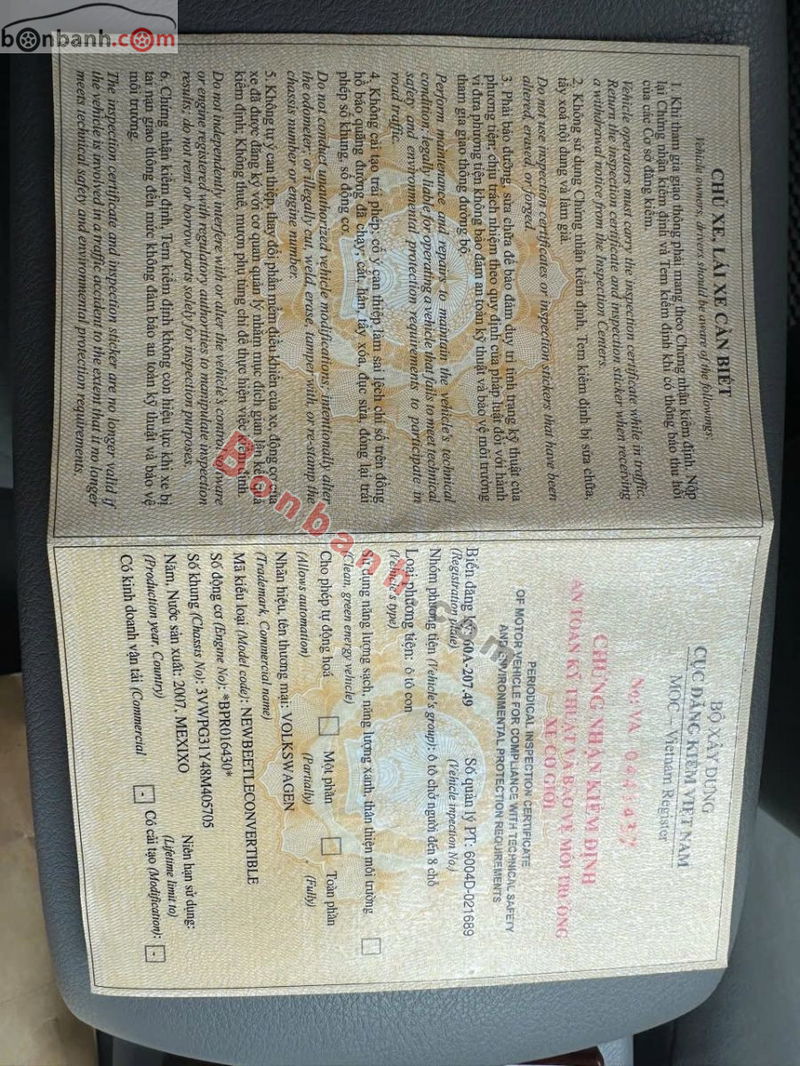 bonbanh.com
CHỦ XE, LÁI XE CẦN BIẾT
Vehicle owners, drivers should be aware of the followings:
1. Khi tham gia giao thông phải mang theo Chứng nhận kiểm định. Nộp
lại Chứng nhận kiểm định và Tem kiểm định khi có thông báo thu hồi
của các Cơ sở đăng kiểm.
Vehicle operators must carry the inspection certificate while in traffic.
Return the inspection certificate and inspection sticker when receiving
a withdrawal notice from the Inspection Centers.
2. Không sử dụng Chứng nhận kiểm định, Tem kiểm định bị sửa chữa,
tẩy xoá nội dung và làm giả.
Do not use inspection certificates or inspection stickers that have been
altered, erased, or forged.
3. Phải bảo dưỡng, sửa chữa để bảo đảm duy trì tình trạng kỹ thuật của
phương tiện; chịu trách nhiệm theo quy định của pháp luật đối với hành
vi đưa phương tiện không bảo đảm an toàn kỹ thuật và bảo vệ môi trường
tham gia giao thông đường bộ.
Perform maintenance and repairs to maintain the vehicle's technical
condition; legally liable for operating a vehicle that fails to meet technical
safety and environmental protection requirements to participate in
road traffic.
4. Không cải tạo trái phép; cố ý can thiệp làm sai lệch chỉ số trên đồng
hồ báo quãng đường đã chạy; cắt, hàn, tẩy xóa, đục sửa, đóng lại trái
phép số khung, số động cơ.
Do not conduct unauthorized vehicle modifications; intentionally alter
the odometer; or illegally cut, weld, erase, tamper with, or re-stamp the
chassis number or engine number.
5. Không tự ý can thiệp, thay đổi phần mềm điều khiển của xe, động cơ của
xe đã được đăng ký với cơ quan quản lý nhằm mục đích gian lận kết quả
kiểm định; Không thuê, mượn phụ tùng chỉ để thực hiện việc kiểm định.
Do not independently interfere with or alter the vehicle's control software
or engine registered with regulatory authorities to manipulate inspection
results; do not rent or borrow parts solely for inspection purposes.
6. Chứng nhận kiểm định, Tem kiểm định không còn hiệu lực khi xe bị
tai nạn giao thông đến mức không đảm bảo an toàn kỹ thuật và bảo vệ
môi trường.
The inspection certificate and inspection sticker are no longer valid if
the vehicle is involved in a traffic accident to the extent that it no longer
meets technical safety and environmental protection requirements.
BỘ XÂY DỰNG
CỤC ĐĂNG KIỂM VIỆT NAM
MOC - Vietnam Register
No: VA
CHỨNG NHẬN KIỂM ĐỊNH
AN TOÀN KỸ THUẬT VÀ BẢO VỆ MÔI TRƯỜNG
XE CƠ GIỚI
PERIODICAL INSPECTION CERTIFICATE
OF MOTOR VEHICLE FOR COMPLIANCE WITH TECHNICAL SAFETY
AND ENVIRONMENTAL PROTECTION REQUIREMENTS
Biển đăng 60A-207.49 Số quản lý PT: 6004D-021689
(Registration plate) (Vehicle inpection No.)
Nhóm phương tiện (Vehicle's group): ô tô chở người đến 8 chỗ
Loại phương tiện: ô tô con
(Vehicle's type)
Sử dụng năng lượng sạch, năng lượng xanh, thân thiện môi trường
(Clean, green energy vehicle)
Cho phép tự động hoá Một phần Toàn phần
(Allows automation) (Partially) (Fully)
Nhãn hiệu, tên thương mại: VOLKSWAGEN
(Trademark, Commercial name)
Mã kiểu loại (Model code): NEWBEETLECONVERTIBLE
Số động cơ (Engine No): *BPR016430*
Số khung (Chassis No): 3VWPG31Y48M405705
Năm, Nước sản xuất: 2007, MEXIXO Niên hạn sử dụng:
(Production year, Country) (Lifetime limit to)
Có kinh doanh vận tải (Commercial - Có cải tạo (Modification): -
Bonbanh.com